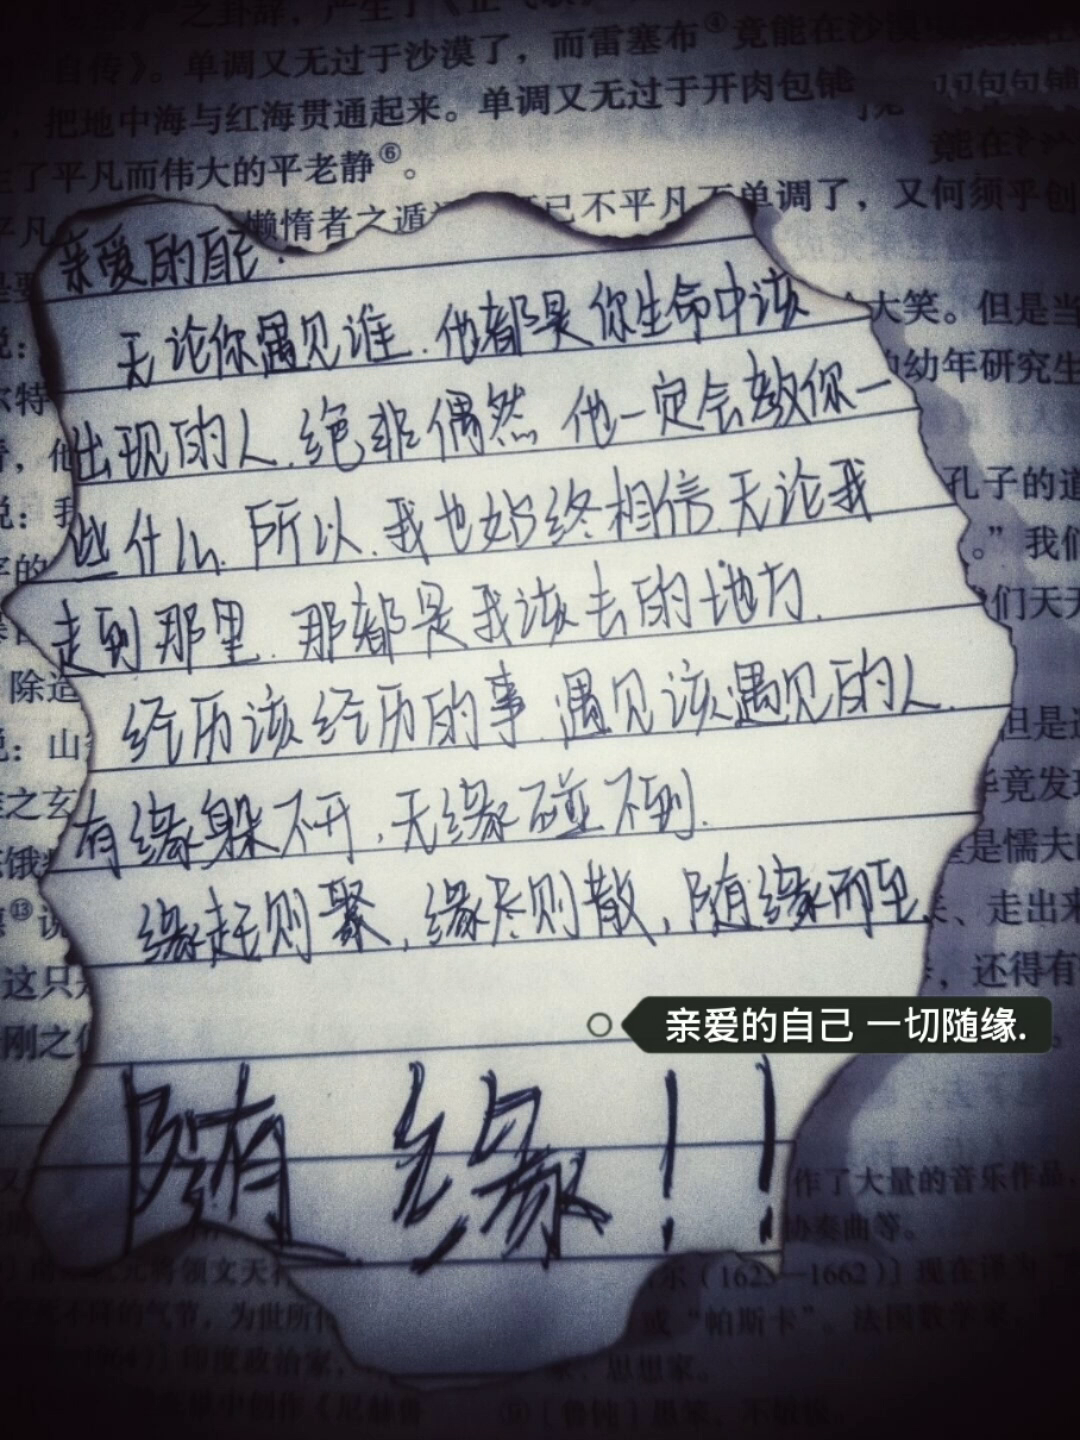 之卦辞，产生了《正气歌》
自传》。单调又无过于沙漠了，而雷塞布④竟能在沙漠
，把地中海与红海贯通起来。单调又无过于开肉包铺
了平凡而伟大的平老静⑥。
平凡
懒惰者之遁
已不平凡而单调了，又何须乎创
亲爱的自己：
无论你遇见谁.他都是你生命中该
出现的人.绝非偶然 他一定会教你一
些什么.所以.我也始终相信.无论我
走到那里.那都是我该去的地方.
经历该经历的事.遇见该遇见的人.
有缘躲不开,无缘碰不到.
缘起则聚,缘尽则散,随缘而至.
亲爱的自己 一切随缘.
随 缘!!
大笑。但是当
的幼年研究生
孔子的道
。”我们
们天天
除造
说：山
但是这
毕竟发现
是懦夫的
、走出来
这只是
，还得有
刚之化
作了大量的音乐作品，
协奏曲等。
尔（1623—1662）〕现在译为“
或“帕斯卡”。法国数学家、
家、思想家。
死不降的气节，为世所
印度政治家，
中创作《尼赫鲁
〔鲁钝〕愚笨，不敏锐。